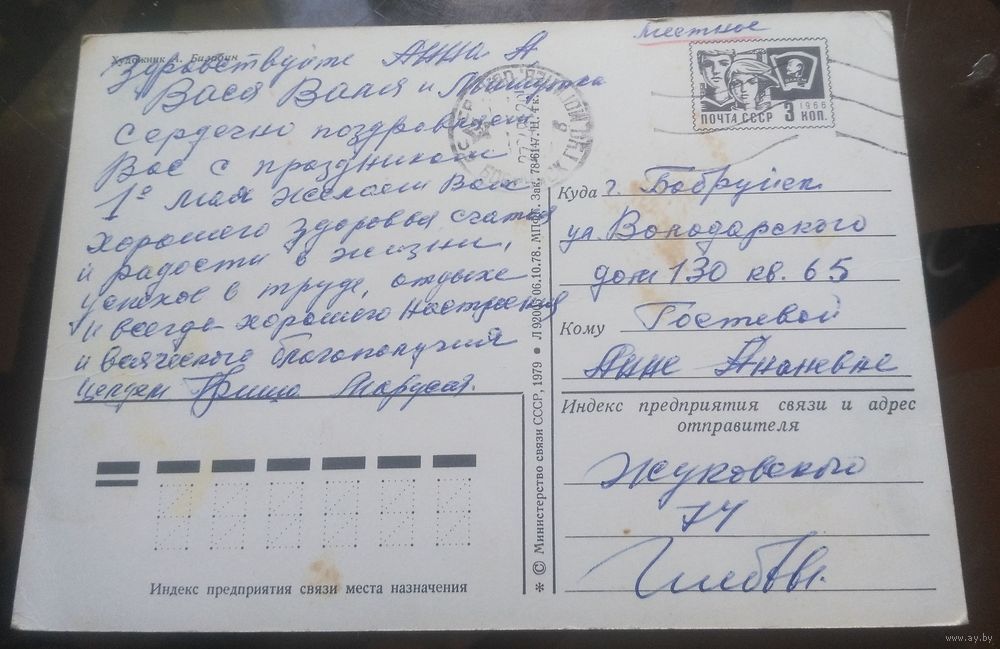 Художник А.
Здравствуйте Анна А
Вася Валя и
Сердечно поздравляем
Вас с праздником
1º мая Желаем Вам
хорошего здоровья счастья
и радости в жизни,
успехов в труде, отдыхе
и всегда хорошего настроения
и всяческого благополучия
Целуем Гриша Маруся.
Местное
ПОЧТА СССР 3 КОП. 1966
ВЛКСМ
Куда г. Бобруйск
ул. Володарского
дом 130 кв. 65
Кому Гостевой
Анне Ананьевне
Индекс предприятия связи и адрес
отправителя
Жуковского
74
Индекс предприятия связи места назначения
* © Министерство связи СССР, 1979 ● Л 92005 06.10.78. МПФГ. Зак. 78-6147. Ц. 4 к.
www.ay.by